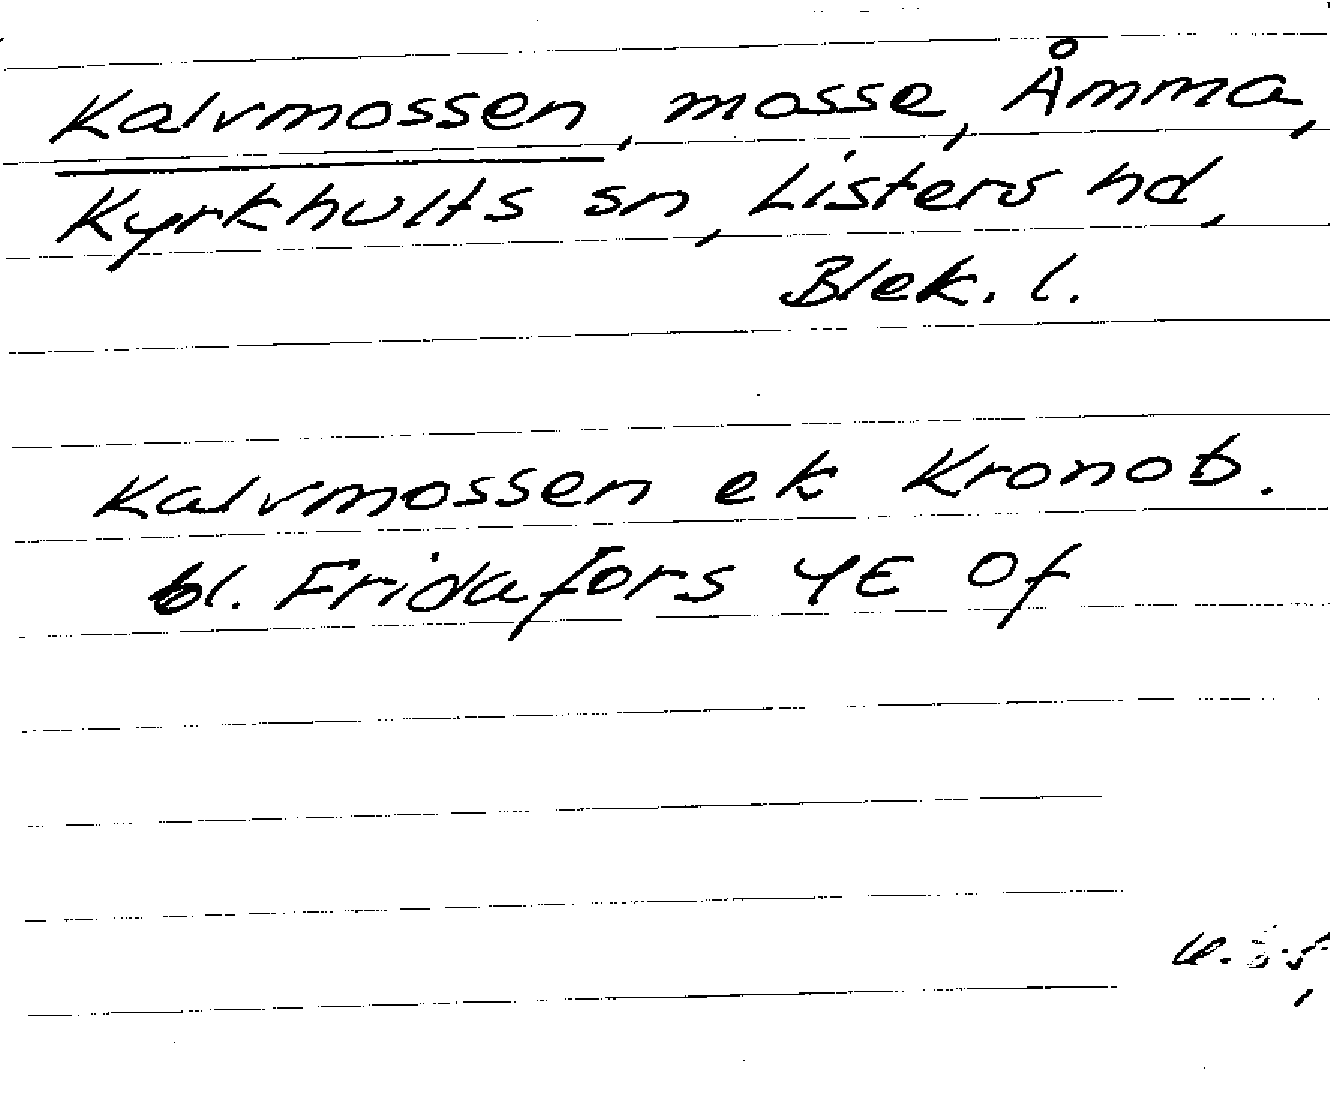 Kalvmossen, mosse, Åmma,
Kyrkhults sn, Listers hd,
Blek. l.
Kalvmossen ek Kronob.
bl. Fridafors 4E Of